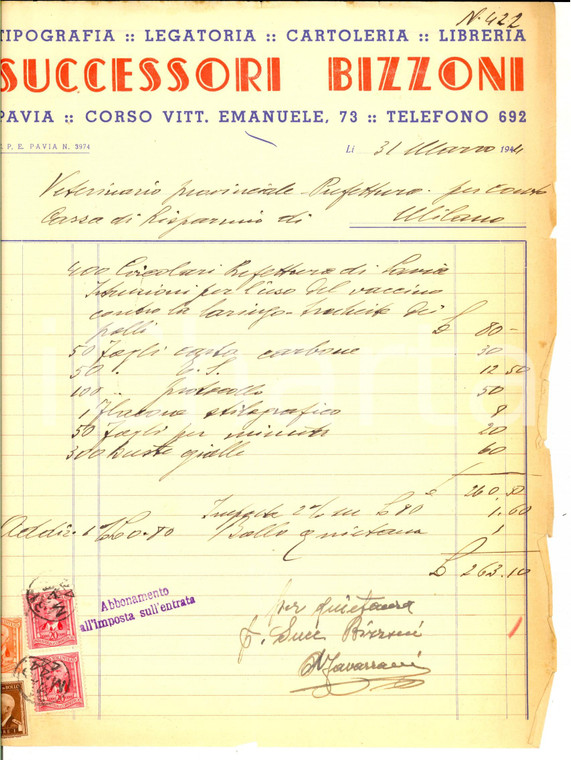 N. 422
TIPOGRAFIA :: LEGATORIA :: CARTOLERIA :: LIBRERIA
SUCCESSORI BIZZONI
PAVIA :: CORSO VITT. EMANUELE, 73 :: TELEFONO 692
C. P. E. PAVIA N. 3974
Li 31 Marzo 1944
Veterinario provinciale - Prefettura - per conto
Cassa di Risparmio di Milano
400 Circolari Prefettura di Pavia
Istruzioni per l'uso del vaccino
contro la laringo-tracheite dei
polli £ 80 -
50 Fogli carta carbone 30
50 " 12 50
100 " protocollo 50
1 Flacone stilografico 8
50 Fogli per minuta 20
300 buste gialle 60
£ 260.50
Imposta 2% su £ 80 1.60
Addiz. Bollo quietanza 1
£ 263.10
Abbonamento
all'imposta sull'entrata
per quietanza
Succ Bizzoni